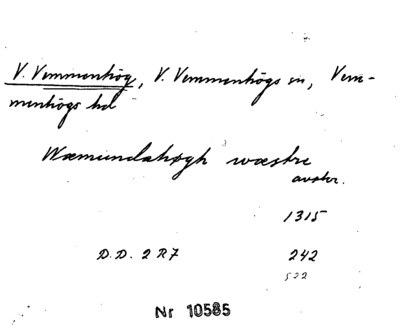 V. Vemmenhög, V. Vemmenhögs sn, Vem-
menhögs hd
Wæmundahøgh wæstre
avskr.
1315
D.D. 2 R 7 242
522
Nr 10585